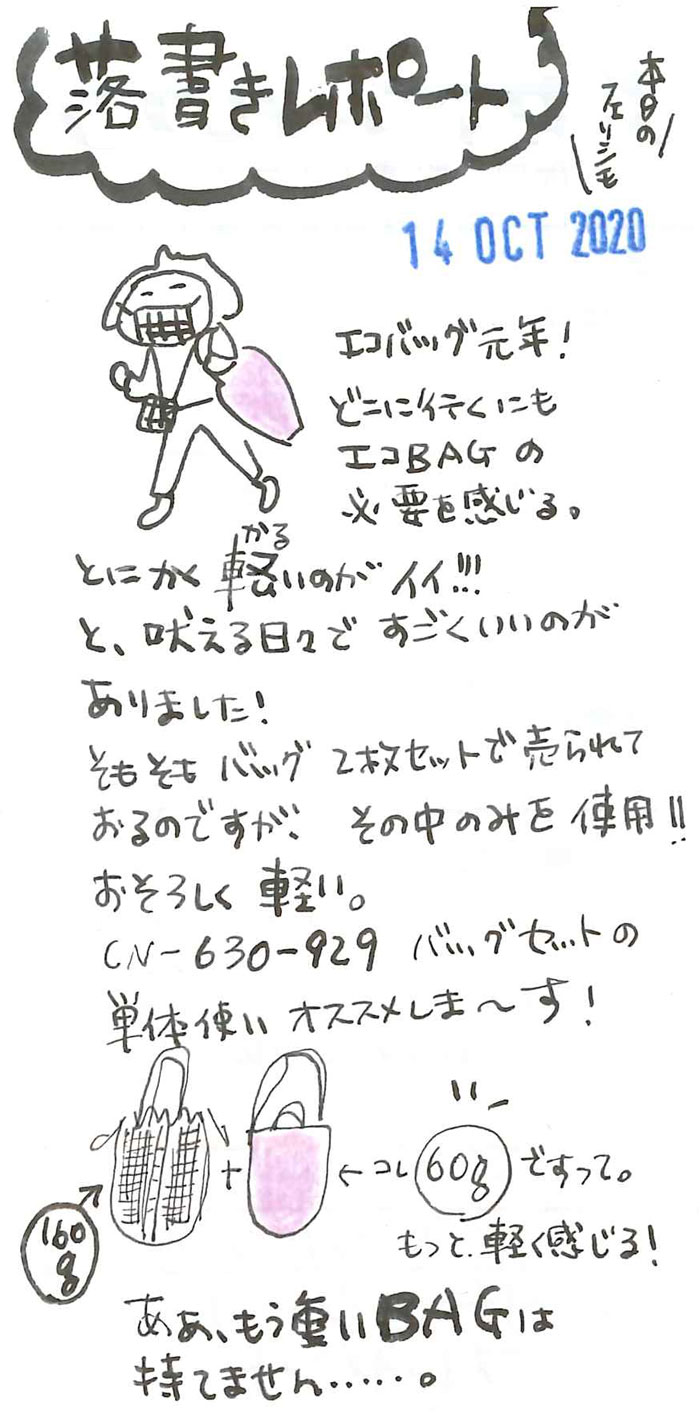 落書きレポート
本日の
フェリシモ
14 OCT 2020
エコバッグ元年!
どこに行くにも
エコBAGの
必要を感じる。
かる
とにかく軽いのがイイ!!!
と、吠える日々ですごくいいのが
ありました!
そもそもバッグ2枚セットで売られて
おるのですが、その中のみを使用!!
おそろしく軽い。
CN-630-929 バッグセットの
単体使いオススメしま〜す!
160g
+
←コレ 60g ですって。
もっと、軽く感じる!
ああ、もう重いBAGは
持てません……。